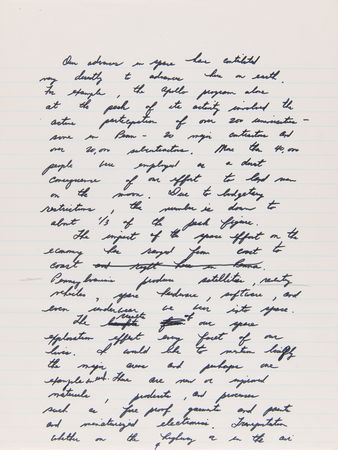 Our advances in space have contributed
very directly to advances here on earth.
For example, the Apollo program alone
at the peak of its activity involved the
active participation of over 200 universities -
some in Penn - 20 major contractors and
over 20,000 subcontractors. More than 400,000
people were employed as a direct
consequence of our effort to land men
on the moon. Due to budgetary
restrictions, the number is down to
about 1/3 of the peak figure.
The impact of the space effort on the
economy has ranged from coast to
coast and right here in Penna.
Pennsylvanians produce satellites, reentry
vehicles, space hardware, software, and
even underwear we wear into space.
The results of our space
exploration effect every facet of our
lives. I would like to mention briefly
the major areas and perhaps one
example in ea. There are new or improved
materials, products, and processes
such as fire proof garments and paint
and miniaturized electronics. Transportation
whether on the highway or in the air